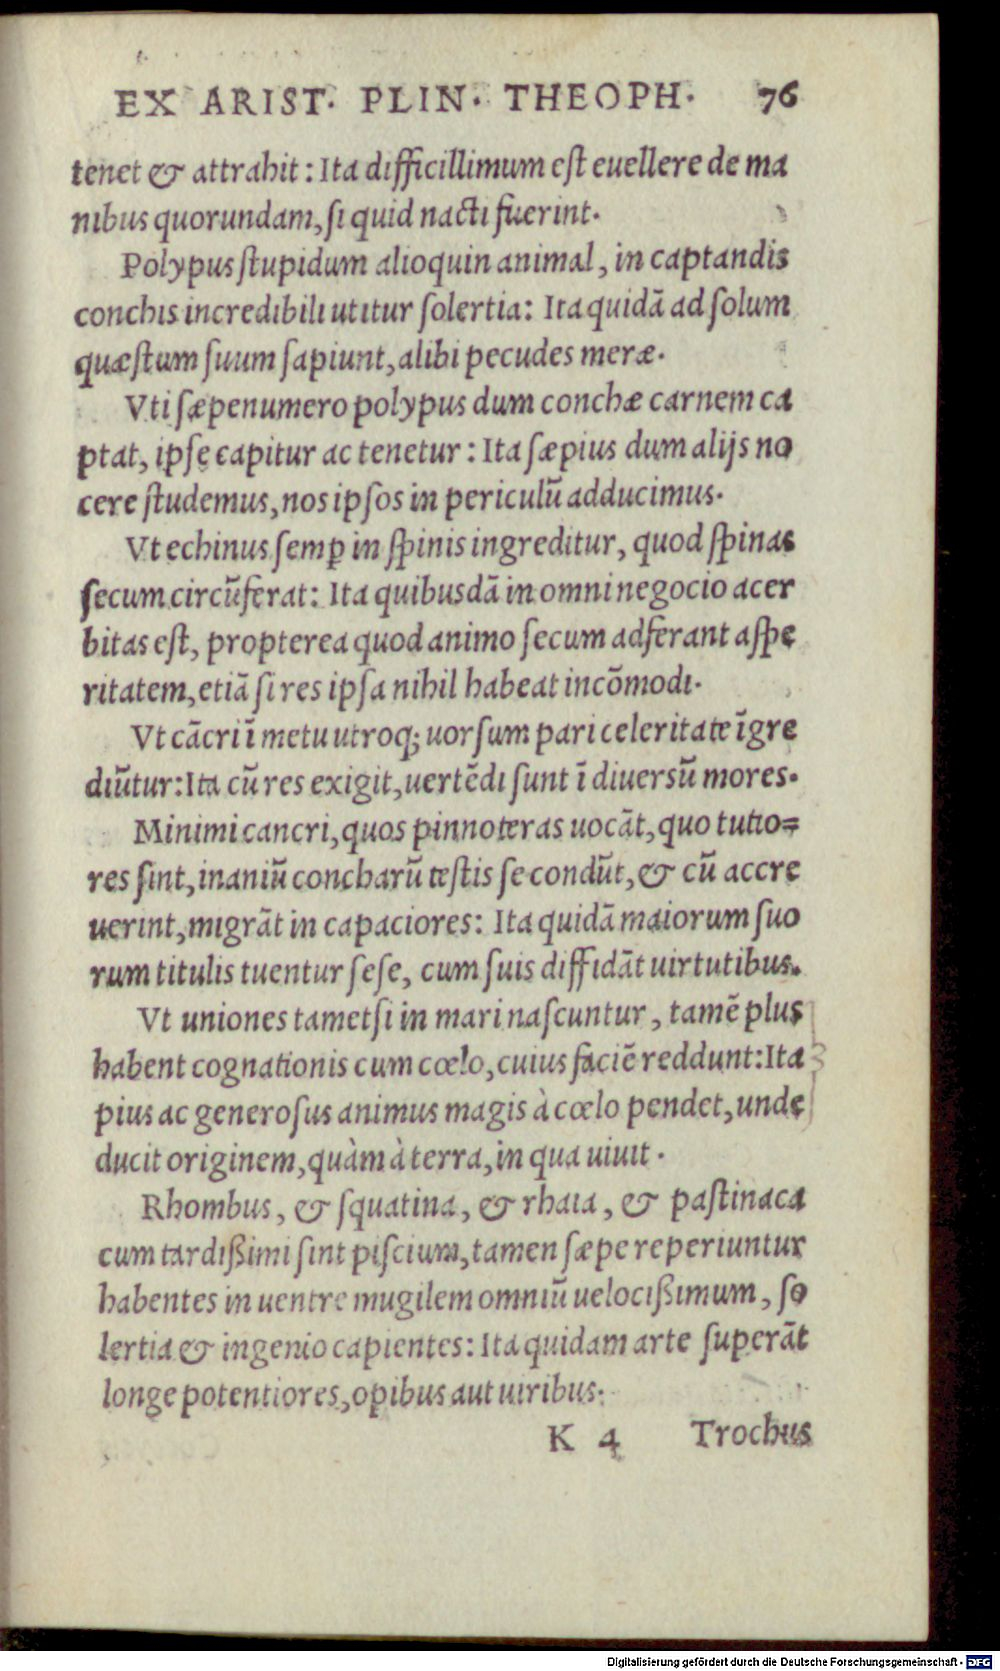 EX ARIST. PLIN. THEOPH. 76
tenet & attrahit: Ita difficillimum eſt euellere de ma
nibus quorundam, ſi quid nacti fuerint.
Polypus ſtupidum alioquin animal, in captandis
conchis incredibili utitur ſolertia: Ita quidā ad ſolum
quæſtum ſuum ſapiunt, alibi pecudes meræ.
Vti ſæpenumero polypus dum conchæ carnem ca
ptat, ipſe capitur ac tenetur: Ita ſæpius dum alijs no
cere ſtudemus, nos ipſos in periculū adducimus.
Vt echinus ſemꝑ in ſpinis ingreditur, quod ſpinas
ſecum circūferat: Ita quibusdā in omni negocio acer
bitas eſt, propterea quod animo ſecum adferant aſpe
ritatem, etiā ſi res ipſa nihil habeat incōmodi.
Vt cācri ī metu utroq; uorſum pari celeritate īgre
diūtur: Ita cū res exigit, uertēdi ſunt ī diuerſū mores.
Minimi cancri, quos pinnoteras uocāt, quo tutio=
res ſint, inaniū concharū teſtis ſe condūt, & cū accre
uerint, migrāt in capaciores: Ita quidā maiorum ſuo
rum titulis tuentur ſeſe, cum ſuis diffidāt uirtutibus.
Vt uniones tametſi in mari naſcuntur, tamē plus
habent cognationis cum cœlo, cuius faciē reddunt: Ita
pius ac generoſus animus magis à cœlo pendet, unde
ducit originem, quàm à terra, in qua uiuit.
Rhombus, & ſquatina, & rhaia, & paſtinaca
cum tardißimi ſint piſcium, tamen ſæpe reperiuntur
habentes in uentre mugilem omniū uelocißimum, ſo
lertia & ingenio capientes: Ita quidam arte ſuperāt
longe potentiores, opibus aut uiribus.
K 4 Trochus
Digitalisierung gefördert durch die Deutsche Forschungsgemeinschaft - DFG